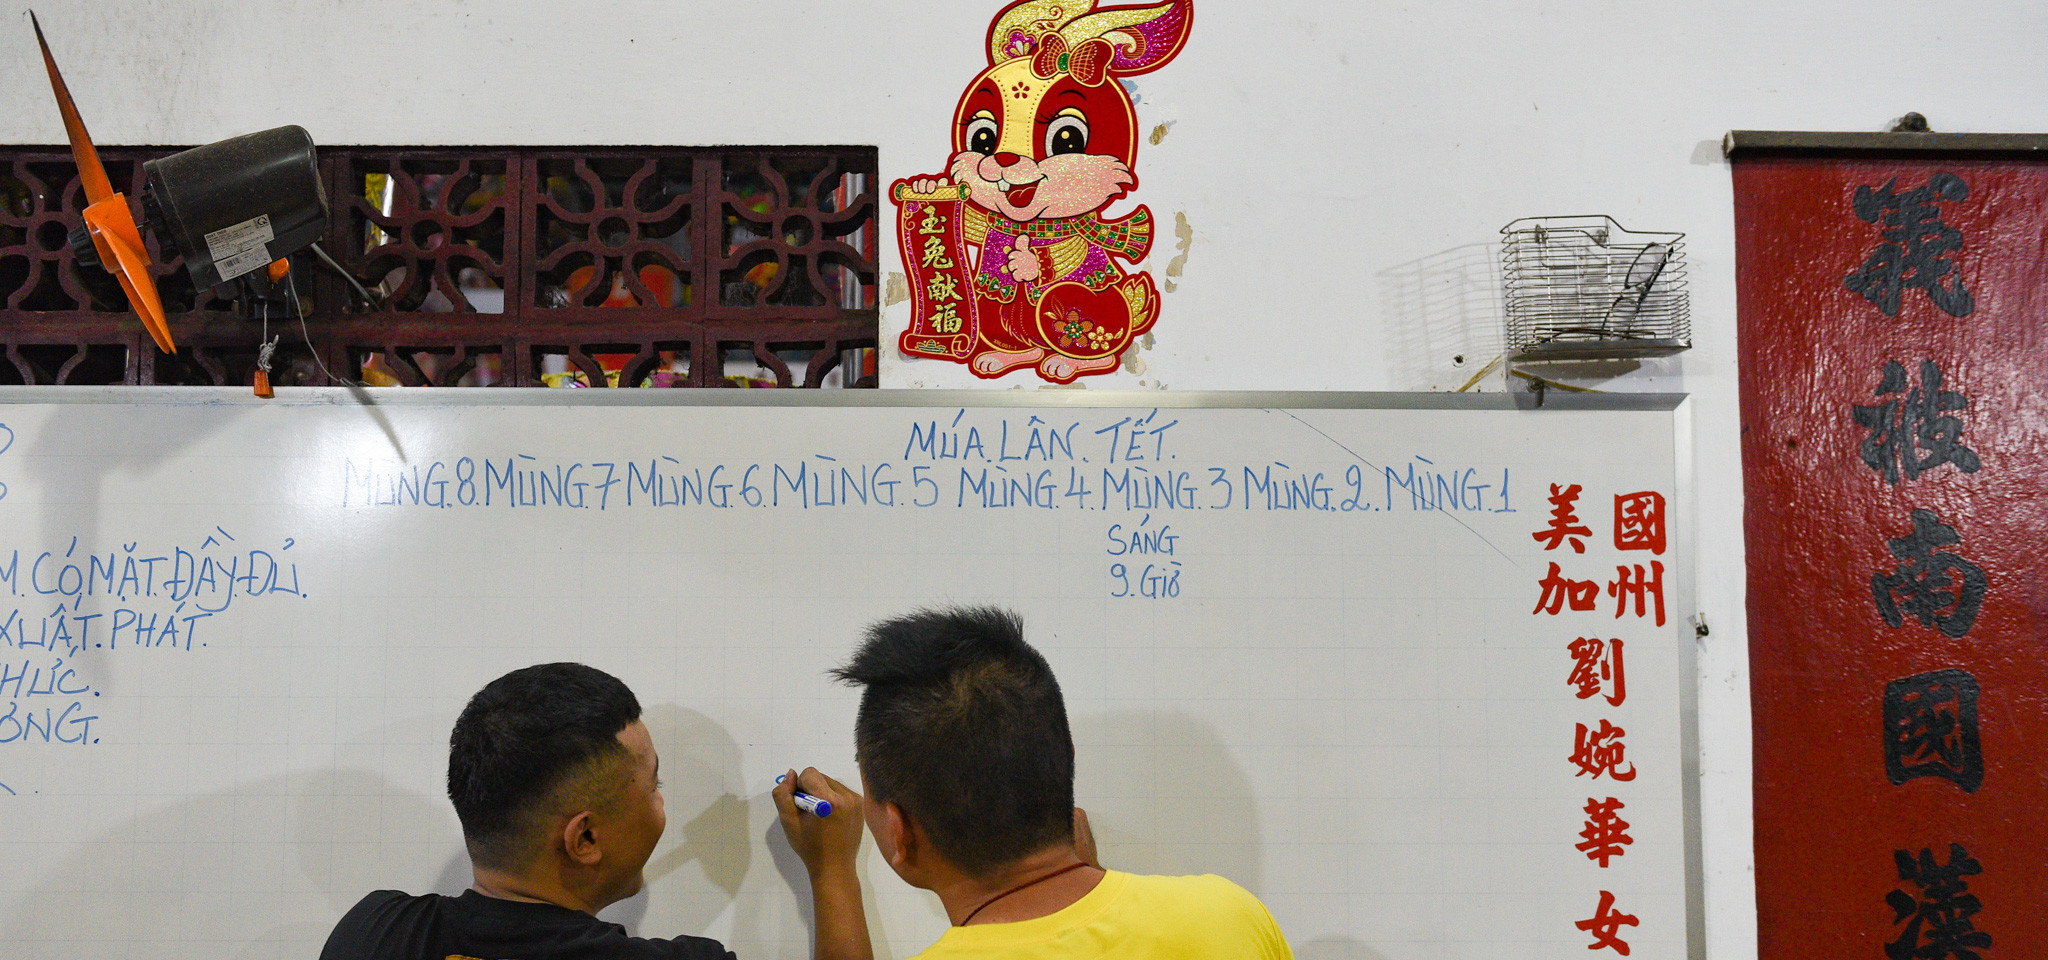 玉兔献福
MÚA.LÂN.TẾT.
MÙNG.8.MÙNG.7 MÙNG.6.MÙNG.5 MÙNG.4.MÙNG.3 MÙNG.2.MÙNG.1
SÁNG
9.GIỜ
CÓ.MẶT.ĐẦY.ĐỦ.
XUẤT.PHÁT.
國州
美加
劉婉華女
義被南國漢